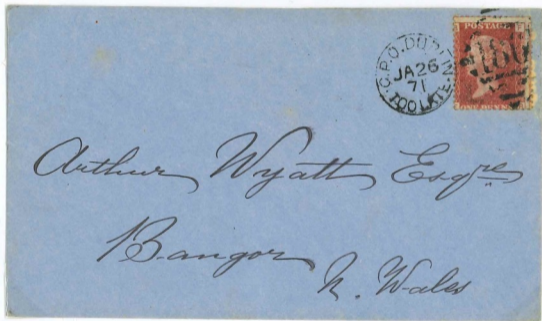 G.P.O. DUBLIN
JA 26
71
TOO LATE
POSTAGE
ONE PENNY
186
Arthur Wyatt Esqre
Bangor
N. Wales